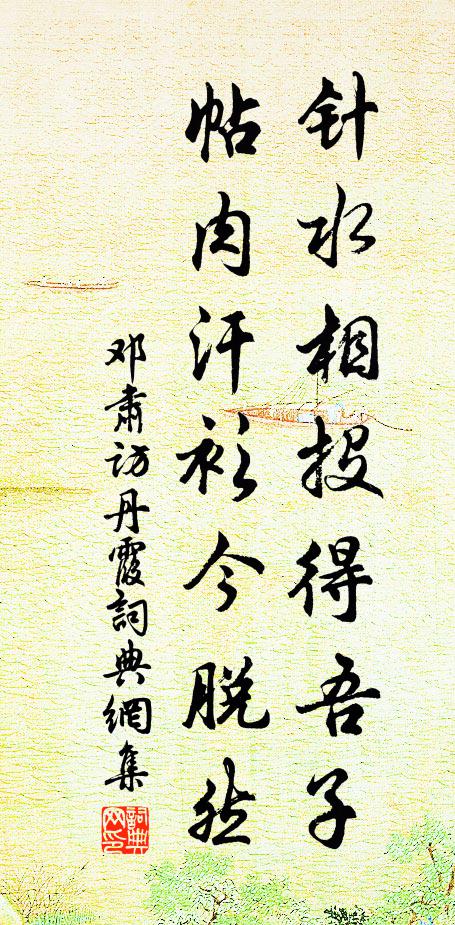 针水相投得吾子
帖肉汗衫今脱然
邓肃访丹霞詞典網集
詞典网印